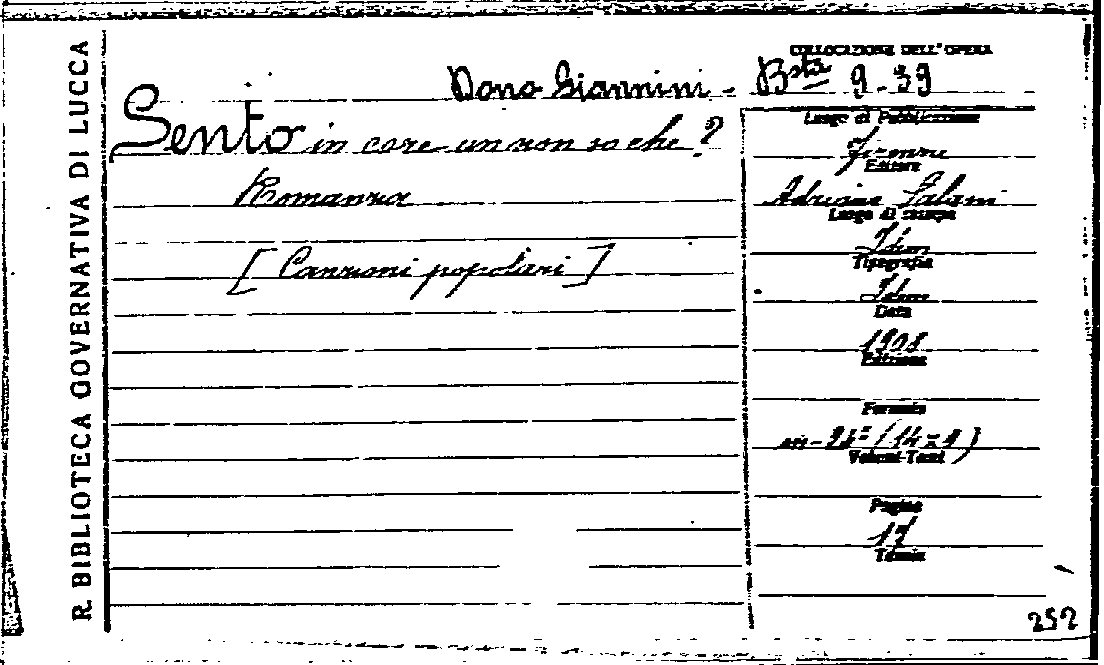 R. BIBLIOTECA GOVERNATIVA DI LUCCA
COLLOCAZIONE DELL'OPERA
Dono Giannini - Bsta 9-39
Sento in core un non so che?
Romanza
[Canzoni popolari]
Luogo di Pubblicazione
Firenze
Editore
Adriano Salani
Luogo di stampa
Idem
Tipografia
Idem
Data
1908
Edizione
Formato
in-24° (14x9)
Volumi-Tomi
Pagine
17
Tavole
252